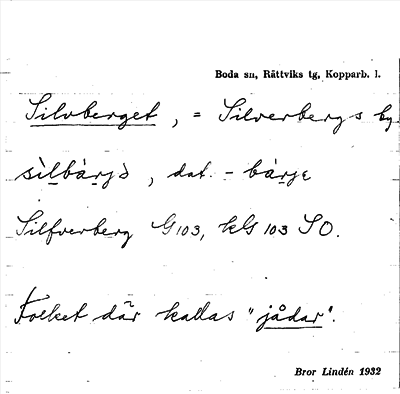 Boda sn, Rättviks tg, Kopparb. l.
Silvberget, = Silverbergs by
sìlbàrjò, dat. - bàrjɛ
Silfverberg G103, kG 103 SO.
Folket där kallas "jådar".
Bror Lindén 1932